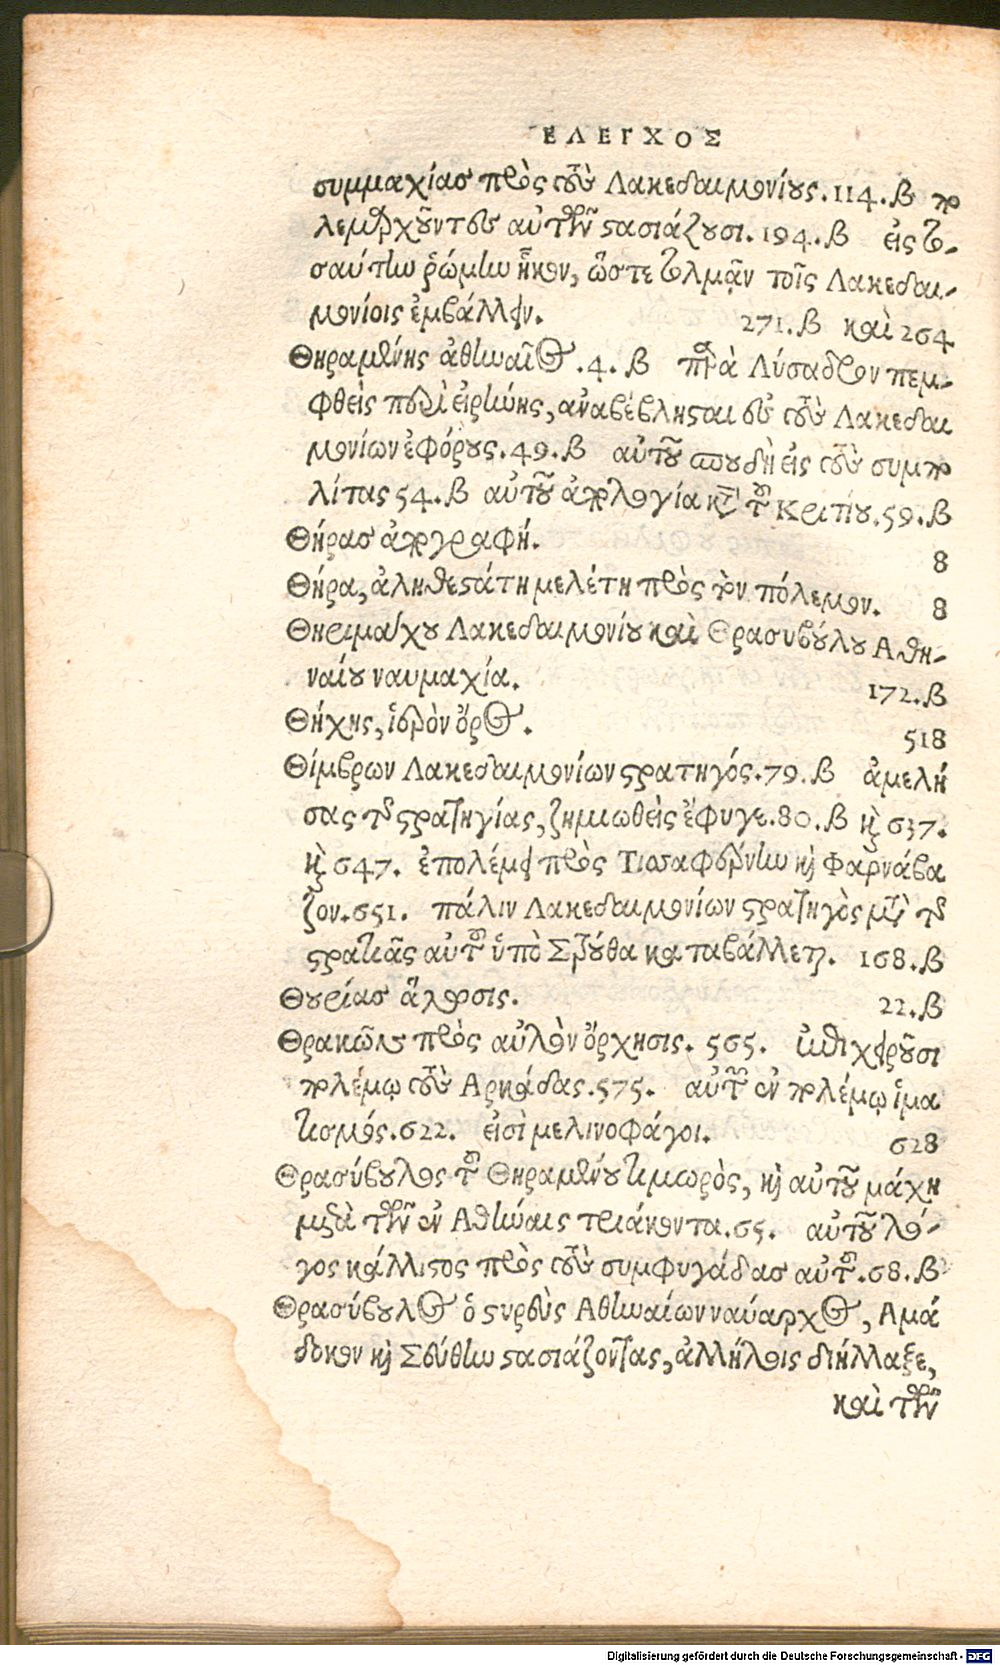 ΕΛΕΓΧΟΣ
συμμαχίας πρὸς τοὺς Λακεδαιμονίους. 114. β πο
λεμαρχοῦντες αὐτῶν στασιάζουσι. 194. β εἰς το-
σαύτην ῥώμην ἧκον, ὥστε τολμᾷν τοῖς Λακεδαι-
μονίοις ἐμβάλλειν. 271. β καὶ 264
Θηραμένης ἀθηναῖος. 4. β παρὰ Λύσανδρον πεμ-
φθεὶς περὶ εἰρήνης, ἀναβέβληται ὑπὸ τοὺς Λακεδαι
μονίων ἐφόρους. 49. β αὐτοῦ σπουδὴ εἰς τοὺς συμπο
λίτας 54. β αὐτοῦ ἀπολογία κατὰ τοῦ Κριτίου. 59. β
Θήρας ἀπογραφή. 8
Θήρα, ἀληθεστάτη μελέτη πρὸς τὸν πόλεμον. 8
Θηριμάχου Λακεδαιμονίου καὶ Θρασυβούλου Αθη-
ναίου ναυμαχία. 172. β
Θήχης, ἱερὸν ὄρος. 518
Θίμβρων Λακεδαιμονίων στρατηγός. 79. β ἀμελή
σας τῆς στρατηγίας, ζημιωθεὶς ἔφυγε. 80. β καὶ 637.
καὶ 647. ἐπολέμει πρὸς Τισσαφέρνην καὶ Φαρνάβα
ζον. 651. πάλιν Λακεδαιμονίων στρατηγὸς μετὰ τῆς
στρατιᾶς αὐτοῦ ὑπὸ Στρούθα καταβάλλεται. 168. β
Θουρίας ἅλωσις. 22. β
Θρακῶν πρὸς αὐλὸν ὄρχησις. 565. ἐπιχειροῦσι
πολέμῳ τοὺς Αρκάδας. 575. αὐτῶν ἐν πολέμῳ ἱμα
τισμός. 622. εἰσὶ μελινοφάγοι. 628
Θρασύβουλος τοῦ Θηραμένου τιμωρὸς, καὶ αὐτοῦ μάχη
μετὰ τῶν ἐν Αθήναις τριάκοντα. 65. αὐτοῦ λό-
γος κάλλιστος πρὸς τοὺς συμφυγάδας αὐτοῦ. 68. β
Θρασύβουλος ὁ στυρεὺς Αθηναίων ναύαρχος, Αμά
δοκον καὶ Σεύθην στασιάζοντας, ἀλλήλοις διήλλαξε,
καὶ τῶν
Digitalisierung gefördert durch die Deutsche Forschungsgemeinschaft - DFG